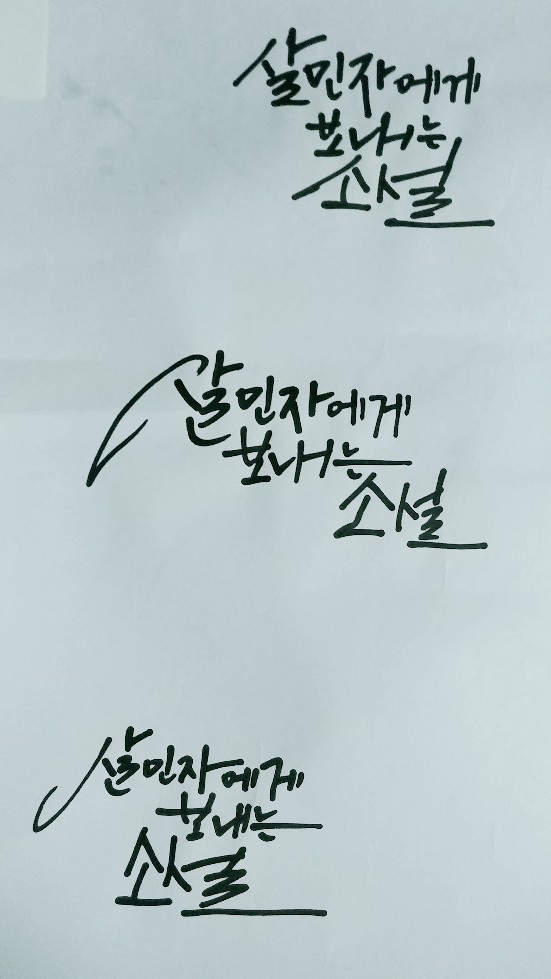 살민자에게
보내는
소설
살민자에게
보내는
소설
살민자에게
보내는
소설